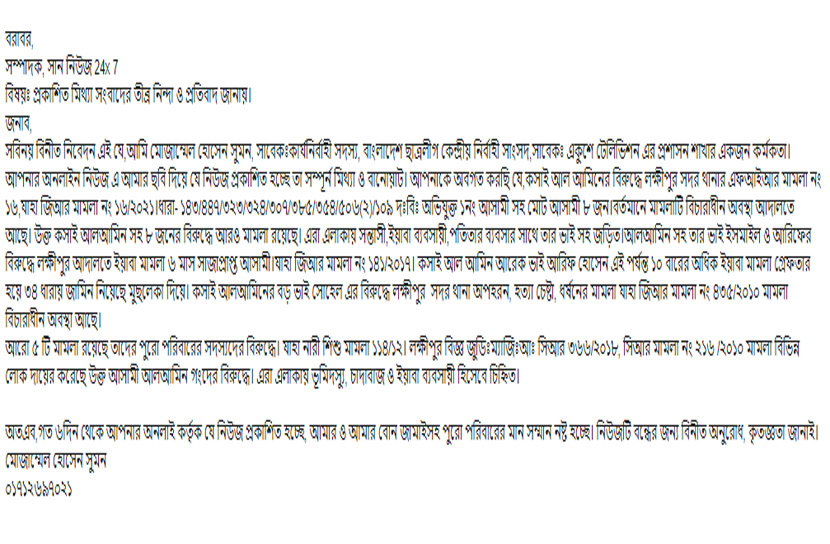 বরাবর,
সম্পাদক, সান নিউজ 24x 7
বিষয়ঃ প্রকাশিত মিথ্যা সংবাদের তীব্র নিন্দা ও প্রতিবাদ জানায়।
জনাব,
সবিনয় বিনীত নিবেদন এই যে,আমি মোজাম্মেল হোসেন সুমন, সাবেকঃকার্যনির্বাহী সদস্য, বাংলাদেশ ছাত্রলীগ কেন্দ্রীয় নির্বাহী সাংসদ,সাবেকঃ একুশে টেলিভিশন এর প্রশাসন শাখার একজন কর্মকতা।
আপনার অনলাইন নিউজ এ আমার ছবি দিয়ে যে নিউজ প্রকাশিত হচ্ছে তা সম্পূর্ন মিথ্যা ও বানোয়াট। আপনাকে অবগত করছি যে,কসাই আল আমিনের বিরুদ্ধে লক্ষীপুর সদর থানার এফআইআর মামলা নং
১৬,যাহা জিআর মামলা নং ১৬/২০২১।ধারা- ১৪৩/৪৪৭/৩২৩/৩২৪/৩০৭/৩৮৫/৩৫৪/৫০৬(২)/১০৯ দঃবিঃ অভিযুক্ত ১নং আসামী সহ মোট আসামী ৮ জন।বর্তমানে মামলাটি বিচারাধীন অবস্থা আদালতে
আছে। উক্ত কসাই আলআমিন সহ ৮ জনের বিরুদ্ধে আরও মামলা রয়েছে। এরা এলাকায় সন্তাসী,ইয়াবা ব্যবসায়ী,পতিতার ব্যবসার সাথে তার ভাই সহ জড়িত।আলআমিন সহ তার ভাই ইসমাইল ও আরিফের
বিরুদ্ধে লক্ষীপুর আদালতে ইয়াবা মামলা ৬ মাস সাজাপ্রাপ্ত আসামী।যাহা জিআর মামলা নং ১৪১/২০১৭। কসাই আল আমিন আরেক ভাই আরিফ হোসেন এই পর্যন্ত ১০ বারের অধিক ইয়াবা মামলা গ্রেফতার
হয়ে ৩৪ ধারায় জামিন নিয়েছে মুছলেকা দিয়ে। কসাই আলআমিনের বড় ভাই সোহেল এর বিরুদ্ধে লক্ষীপুর সদর থানা অপহরন, হত্যা চেষ্টা, ধর্ষনের মামলা যাহা জিআর মামলা নং ৪৩৫/২০১০ মামলা
বিচারাধীন অবস্থা আছে।
আরো ৫ টি মামলা রয়েছে তাদের পুরো পরিবারের সদস্যদের বিরুদ্ধে। যাহা নারী শিশু মামলা ১১৪/১২। লক্ষীপুর বিজ্ঞ জুডিঃম্যাজিঃআঃ সিআর ৩৬৬/২০১৮, সিআর মামলা নং ২১৬ /২০১০ মামলা বিভিন্ন
লোক দায়ের করেছে উক্ত আসামী আলআমিন গংদের বিরুদ্ধে। এরা এলাকায় ভূমিদস্যু, চাদাবাজ ও ইয়াবা ব্যবসায়ী হিসেবে চিহ্নিত।
অতএব,গত ৬দিন থেকে আপনার অনলাই কর্তৃক যে নিউজ প্রকাশিত হচ্ছে, আমার ও আমার বোন জামাইসহ পুরো পরিবারের মান সম্মান নষ্ট হচ্ছে। নিউজটি বন্ধের জন্য বিনীত অনুরোধ, কৃতজ্ঞতা জানাই।
মোজাম্মেল হোসেন সুমন
০১৭১২৬৯৭০২১